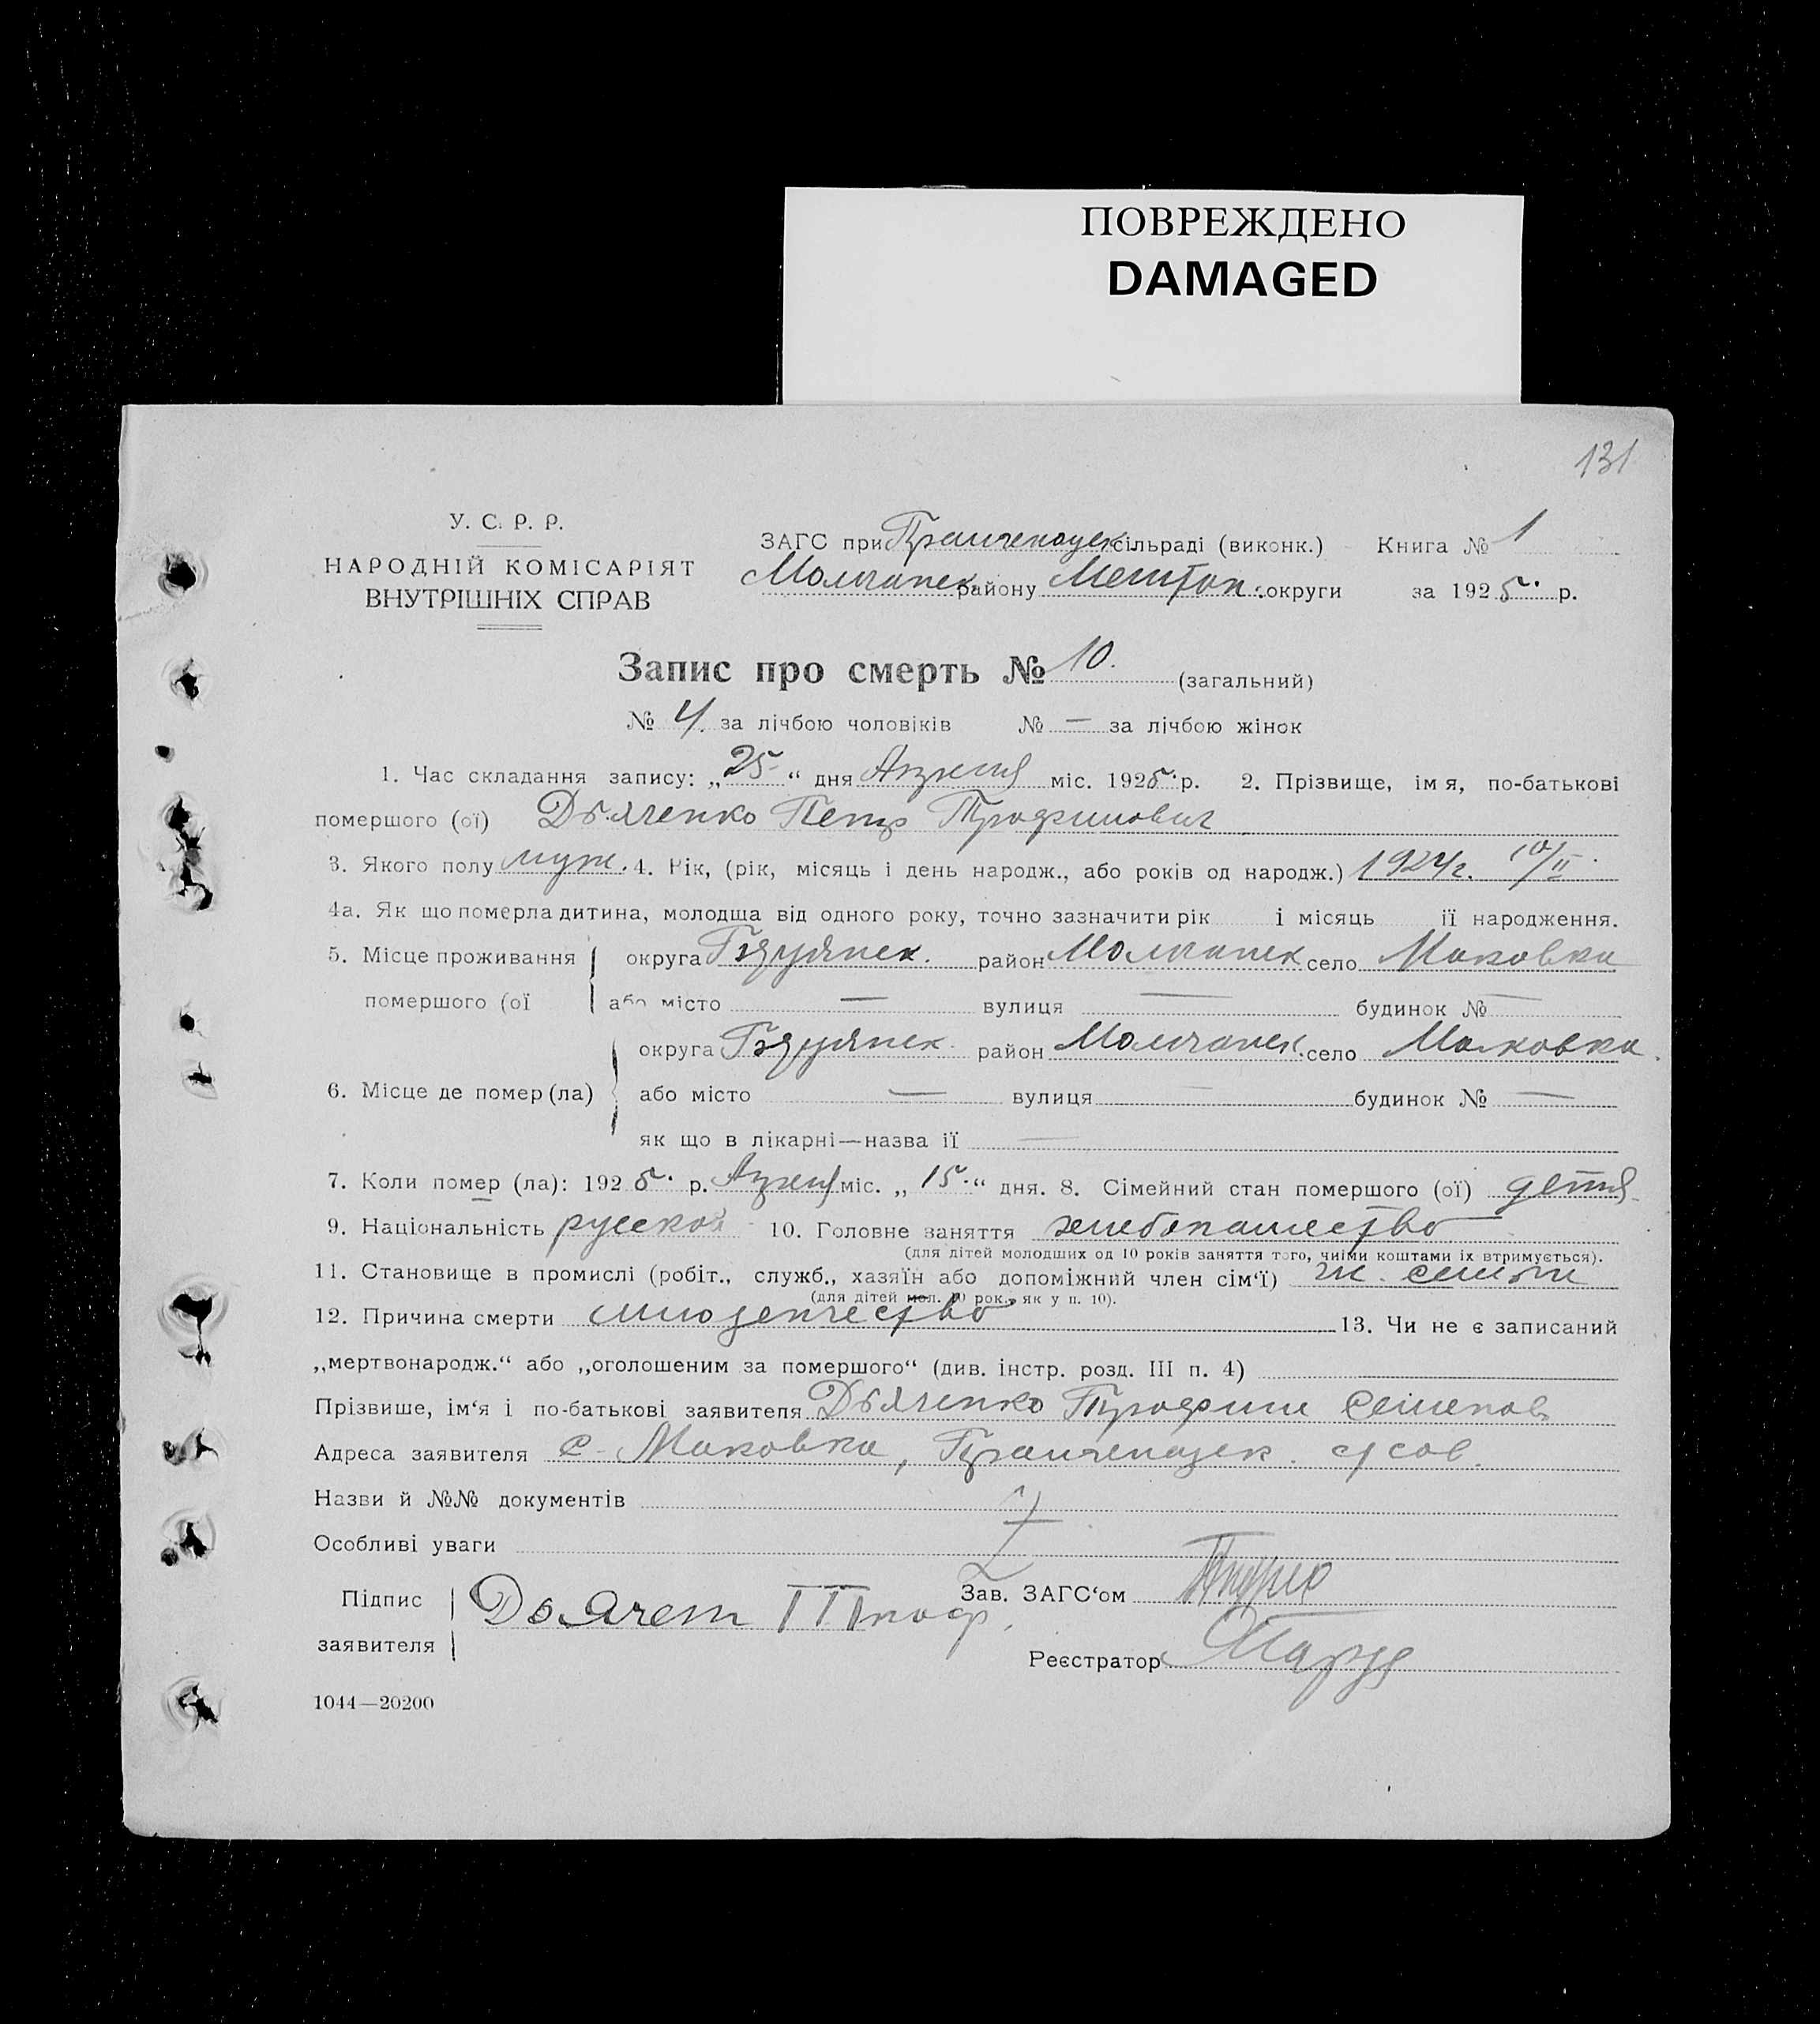 ПОВРЕЖДЕНО
DAMAGED
131
У. С. Р. Р.
НАРОДНІЙ КОМІСАРІЯТ
ВНУТРІШНІХ СПРАВ
ЗАГС при сільраді (виконк.) Книга № 1
району округи за 1925 р.
Запис про смерть № 10. (загальний)
№ 4. за лічбою чоловіків № — за лічбою жінок
1. Час складання запису: „25“ дня Апреля міс. 1925 р. 2. Прізвище, імя, по-батькові
помершого (ої) Дьяченко Петр Трофимович
3. Якого полу муж. 4. Рік, (рік, місяць і день народж., або років од народж.) 1924 г. 10/II
4а. Як що померла дитина, молодща від одного року, точно зазначити рік і місяць її народження.
5. Місце проживання округа район Молчанск село Маковка
помершого (ої або місто — вулиця — будинок № —
округа район Молчанск. село Маковка.
6. Місце де помер (ла) або місто — вулиця — будинок № —
як що в лікарні—назва ії —
7. Коли помер (ла): 1925 р. Апреля міс. „15“ дня. 8. Сімейний стан помершого (ої) детя
9. Національність русской 10. Головне заняття хлебопашество
(для дітей молодших од 10 років заняття того, чиїми коштами їх втримується).
11. Становище в промислі (робіт., служб., хазяїн або допоміжний член сім‘ї) семьи
(для дітей мол. 10 рок., як у п. 10).
12. Причина смерти младенчество 13. Чи не є записаний
„мертвонародж.“ або „оголошеним за помершого“ (див. інстр. розд. III п. 4)
Прізвише, ім‘я і по-батькові заявителя Дьяченко Трофим Семенов
Адреса заявителя с. Маковка, с/сов.
Назви й №№ документів
Особливі уваги
Підпис Дьячен Троф. Зав. ЗАГС‘ом
заявителя
Реєстратор
1044—20200